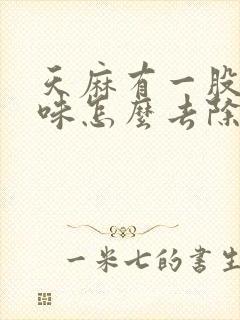 天麻有一股
味怎麼去除
一米七的書生